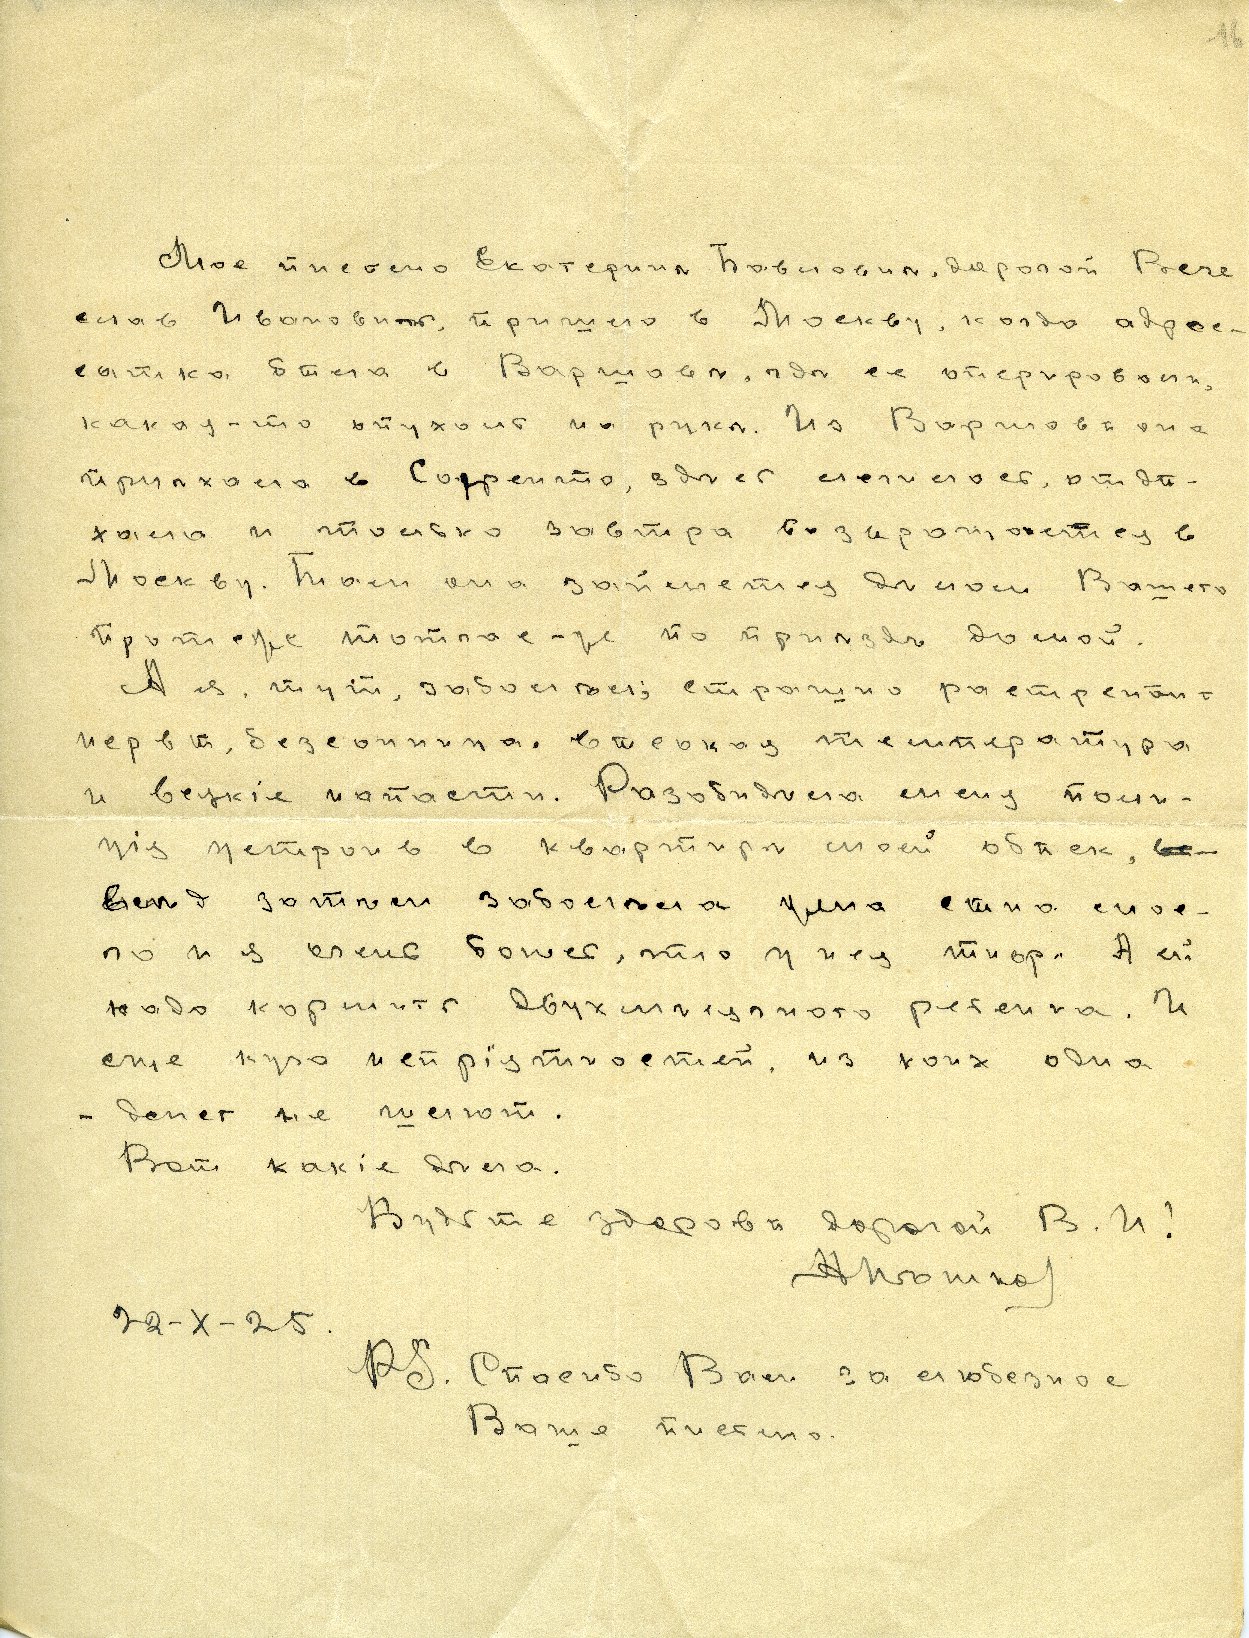 16
Мое письмо Екатеринѣ Павловнѣ, дорогой Вяче
слав Иванович, пришло в Москву, когда адре-
сатка была в Варшавѣ, гдѣ ее оперировали,
какая-то опухоль на рукѣ. Из Варшавы она
приѣхала в Сорренто, здѣсь лечилась, отды-
хала и только завтра возвращается в
Москву. Там она займется дѣлом Вашего
протеже тотчас-же по приѣздѣ домой.
А я, тут, заболѣл; страшно растрепаны
нервы, безсонница, высокая температура
и всякіе напасти. Разобидѣла меня поли-
ція устроив в квартирѣ моей обыск,
вслѣд затѣм заболѣла жена сына мое-
го и я очень боюсь, что у нея тиф. А ей
надо кормить двухмѣсячного ребенка. И
еще куча непріятностей, из коих одна
- денег не шлют.
Вот какіе дѣла.
Будьте здоровы дорогой В. И!
А Пѣшков
22-X-25.
P.S. Спасибо Вам за любезное
Ваше письмо.